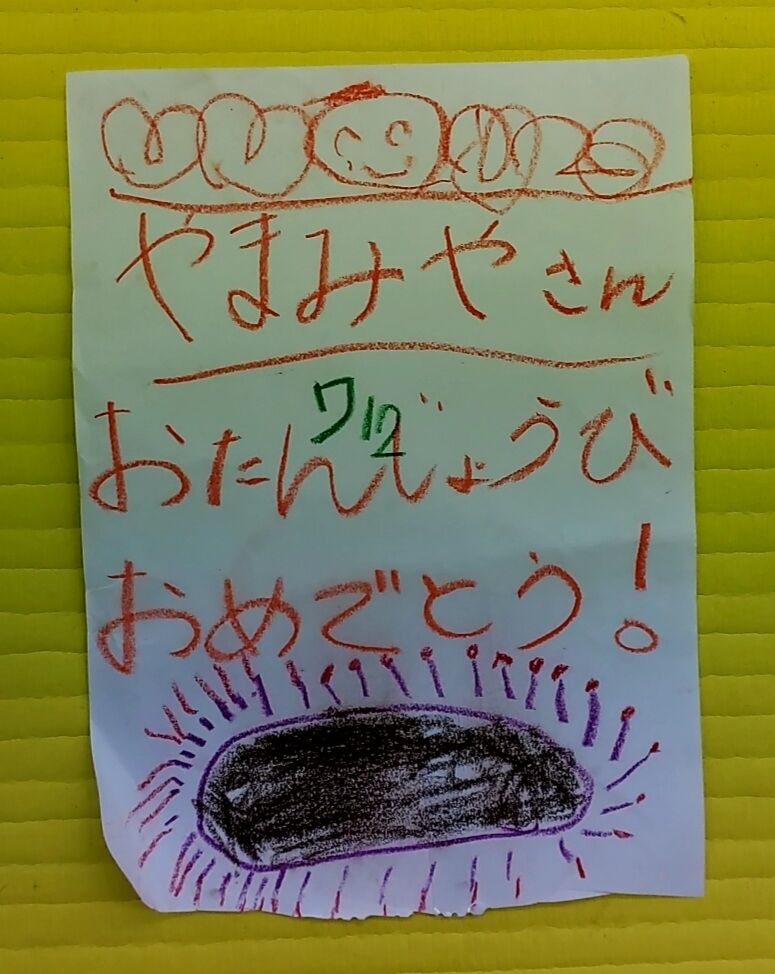 やまみやさん
7/12
おたんじょうび
おめでとう!